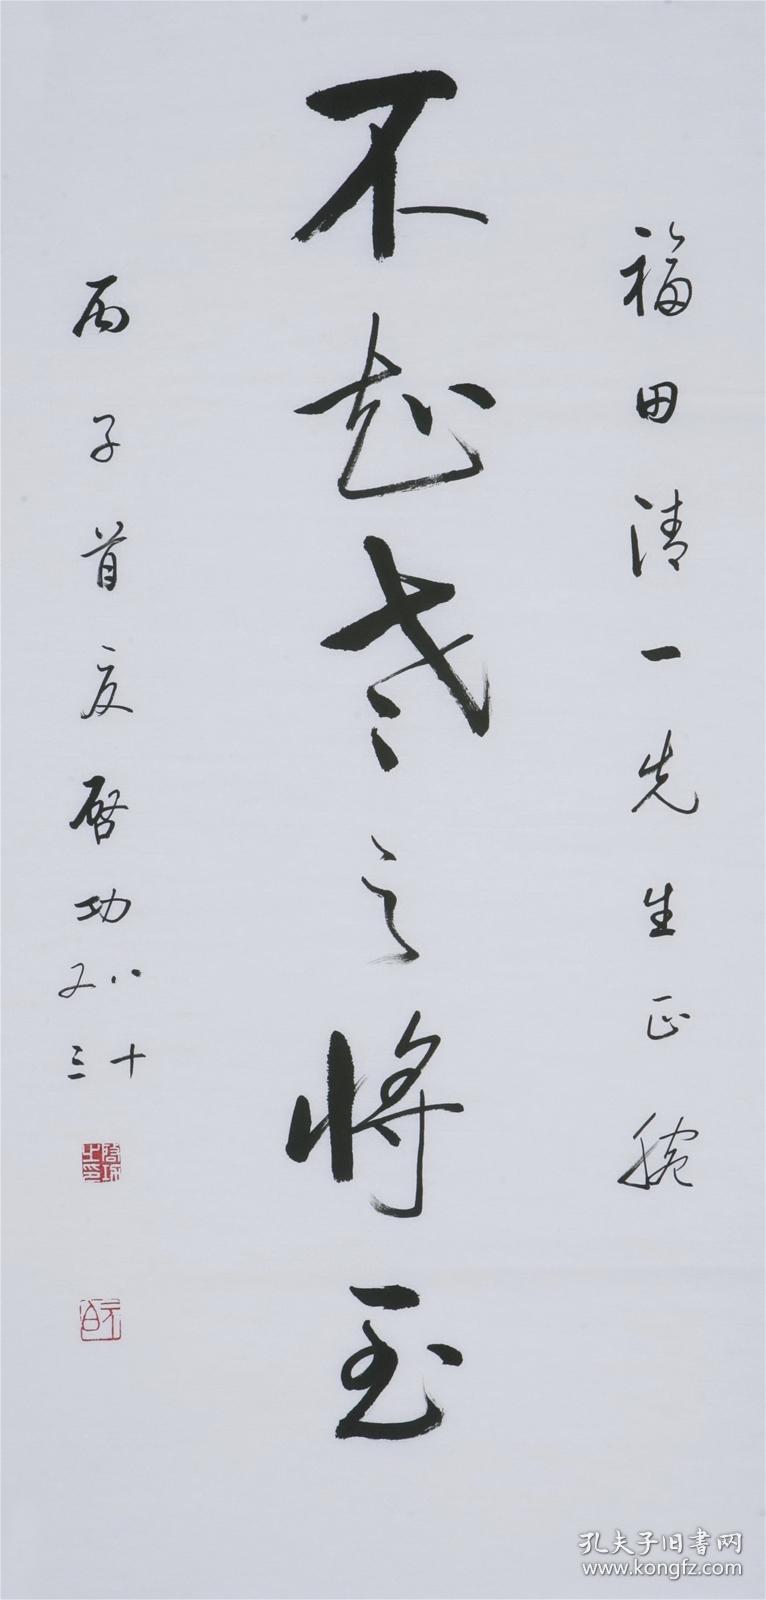 福田清一先生正腕
不知老之将至
丙子首夏启功
八十
又三
启功之印
元白
孔夫子旧书网
www.kongfz.com